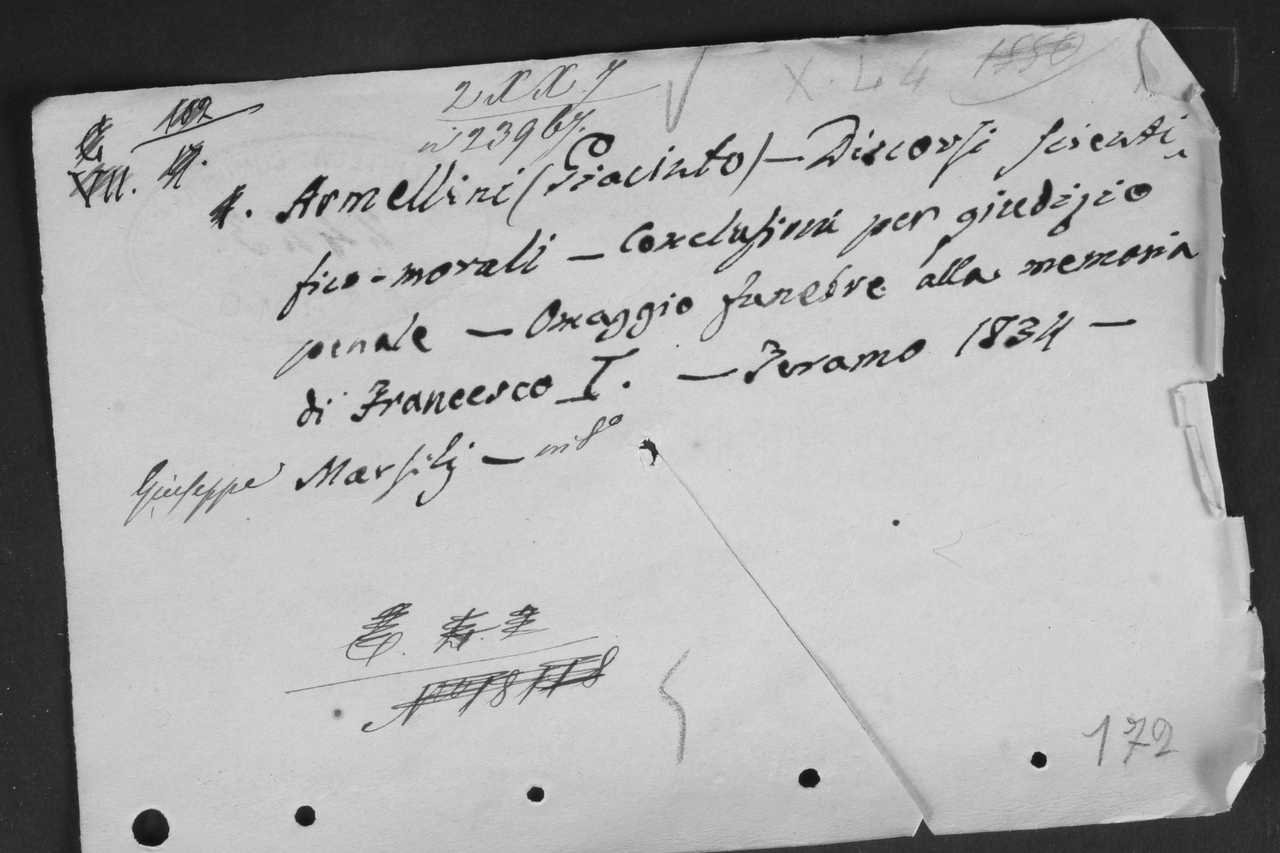 2 X X. 7
X. L 4
n° 23967.
182
VIII.
Armellini (Giacinto) — Discorsi scienti
fico-morali — Conclusioni per giudizio
penale — Omaggio funebre alla memoria
di Francesco I. — Teramo 1834 —
Giuseppe Marsilj — in 8°
172